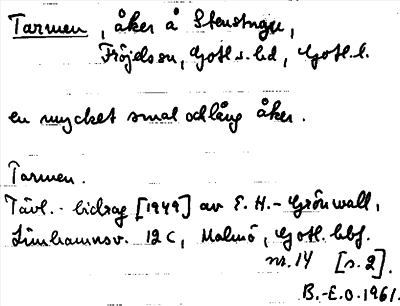 Tarmen, åker å Stenstugu,
Fröjel sn, Gotl. s. hd, Gotl. l.
en mycket smal och lång åker.
Tarmen.
Tävl.-bidrag [1949] av E. H.-Grönwall,
Limhamnsv. 12 C, Malmö, Gotl. hbf.
nr. 14 [s. 2].
B.-E. O. 1961.